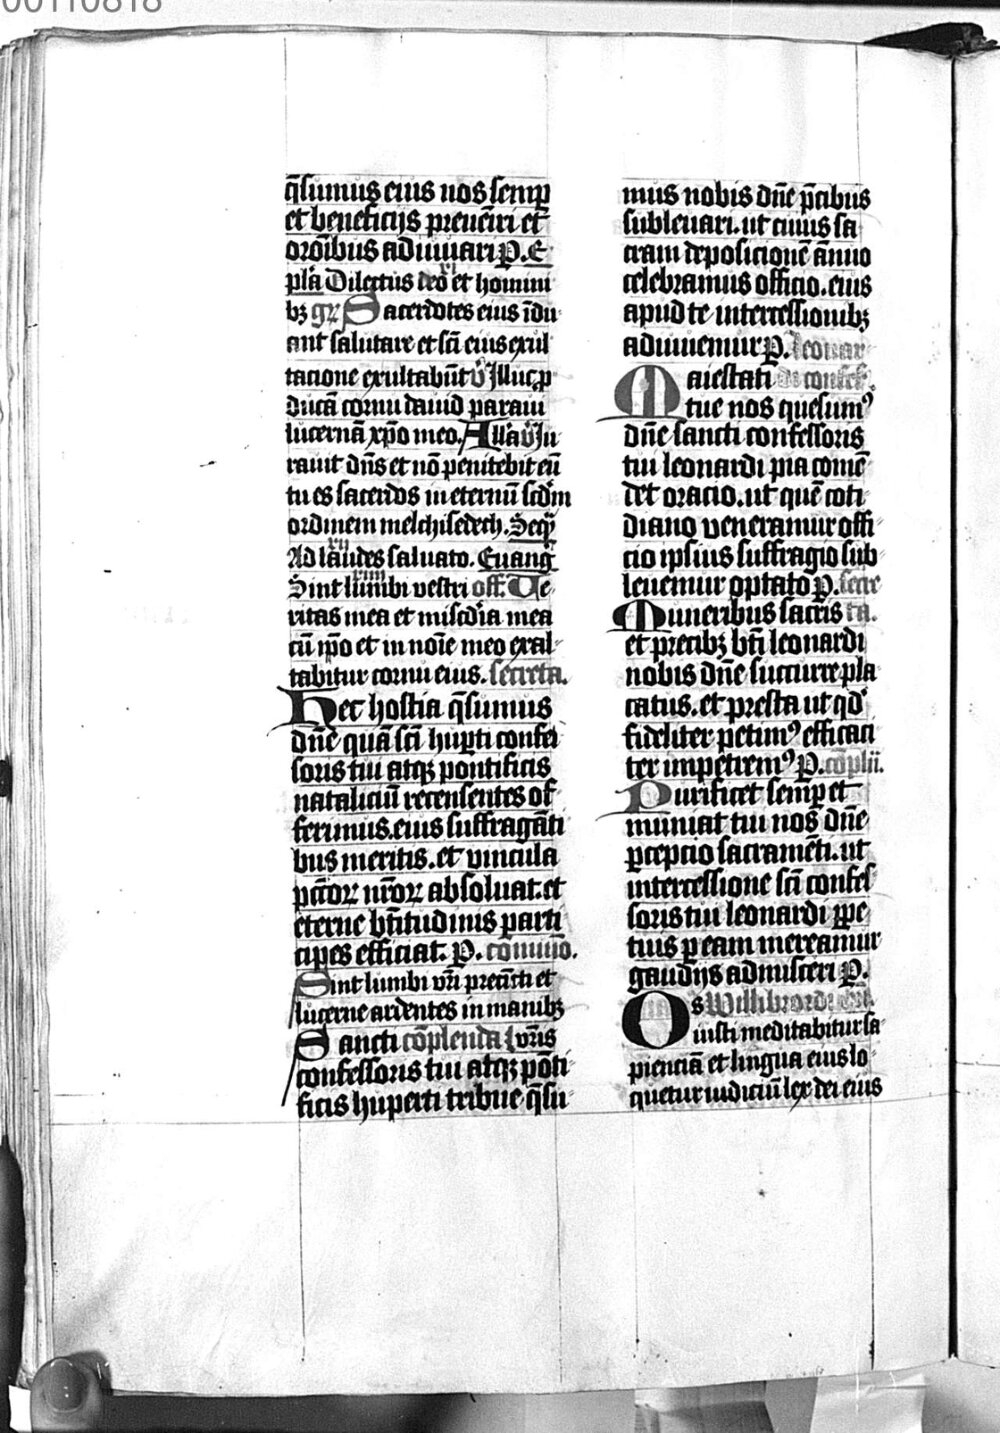 00110818
q̄sumus eius nos semꝑ
et beneficijs preueniri et
or̄oibus adiuuari P. E
pl̄a Dilectus deo et homini
bꝫ gr̄ Sacerdotes eius īdu
ant salutare et sc̄i eius exul
tacione exultabūt v̄ Illuc ꝓ
ducā cornu dauid paraui
lucernā xp̄o meo. Al̄la v̄ Iu
rauit dn̄s et nō penitebit eū
tu es sacerdos in eternū scd̄m
ordinem melchisedech. Seq̄
xii
Ad laudes saluato. Euanḡ
xiiii
Sint lumbi vestri off. Ue
ritas mea et misc̄dia mea
cū ip̄o et in noīe meo exal
tabitur cornu eius. secreta.
Hec hostia q̄sumus
dn̄e quā sc̄i huꝑti confes
soris tui atqꝫ pontificis
nataliciū recensentes of
ferimus. eius suffragāti
bus meritis. et vincula
pc̄c̄oꝝ nr̄oꝝ absoluat. et
eterne bt̄itudinis parti
cipes efficiat. P. cōmuīo.
Sint lumbi vr̄i precīcti et
lucerne ardentes in manibꝫ
Sancti cōplenda vr̄is
confessoris tui atqꝫ pōti
ficis huperti tribue q̄su
mus nobis dn̄e p̄cibus
subleuari. ut cuius sa
cram deposicionē ānuo
celebramus officio. eius
apud te intercessionibꝫ
adiuuemur P. leonar
Maiestati di confess.
tue nos quesumꝰ
dn̄e sancti confessoris
tui leonardi pia comē
det oracio. ut quē coti
diano veneramur offi
cio ipsius suffragio sub
leuemur optato P. secre
Muneribus sacris ta.
et precibꝫ bt̄i leonardi
nobis dn̄e succurre pla
catus. et presta ut qd̄
fideliter petimꝰ efficaci
ter impetremꝰ P. cōplīī.
Purificet semꝑ et
muniat tui nos dn̄e
ꝑcepcio sacramēti. ut
intercessione sc̄i confes
soris tui leonardi ꝑpe
tuis ꝑ eam mereamur
gaudijs admisceri P.
Os Willibrordi
iusti meditabitur sa
pienciā et lingua eius lo
quetur iudiciū lex dei eius